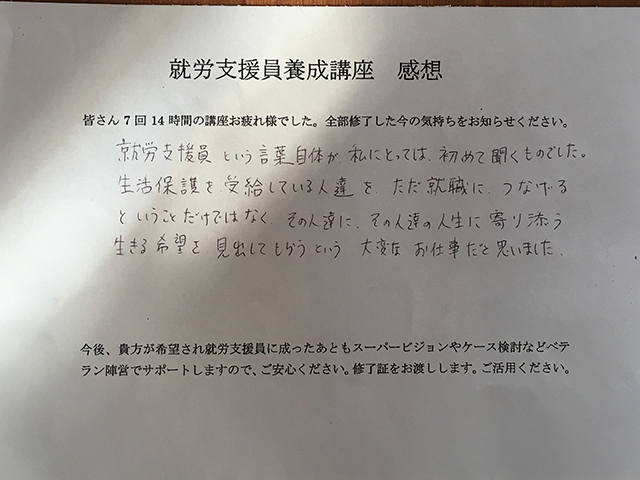 就労支援員養成講座　感想
皆さん7回14時間の講座お疲れ様でした。全部修了した今の気持ちをお知らせください。
就労支援員という言葉自体が、私にとっては、初めて聞くものでした。
生活保護を、受給している人達を、ただ就職に、つなげる
ということだけではなく、その人達に、その人達の人生に寄り添う
生きる希望を、見出してもらうという　大変な　お仕事だと思いました。
今後、貴方が希望され就労支援員に成ったあともスーパービジョンやケース検討などベテ
ラン陣営でサポートしますので、ご安心ください。修了証をお渡しします。ご活用ください。